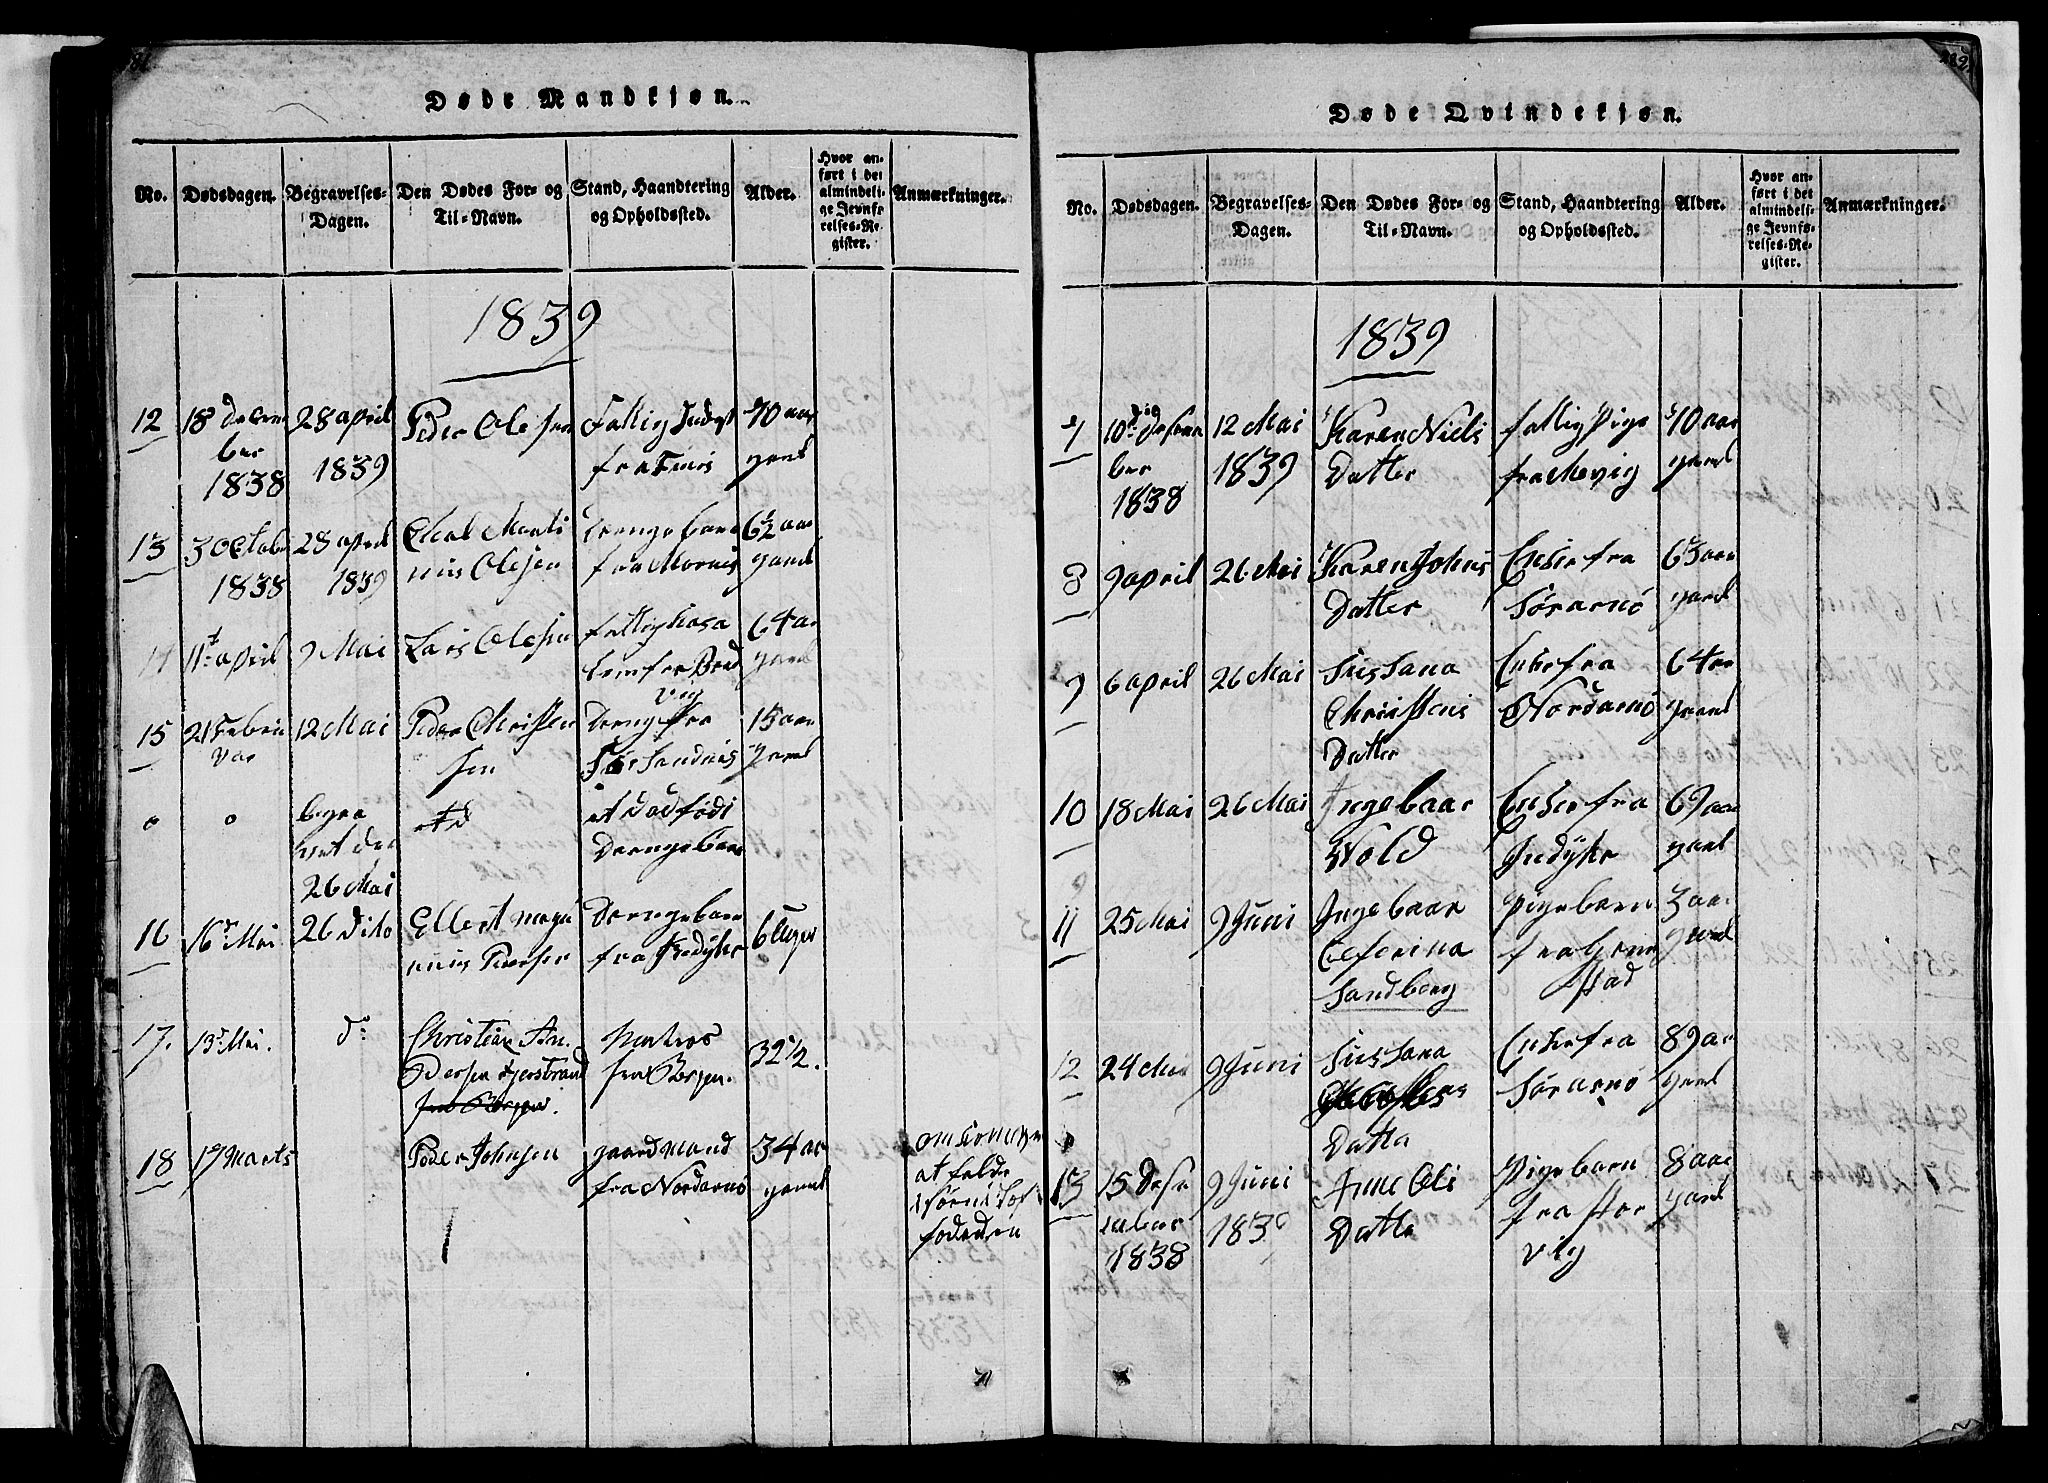 Døde Mandkjøn.
No.
Dødsdagen.
Begravelses-
Dagen.
Den Dødes For- og
Til-Navn.
Stand, Haandtering
og Opholdssted.
Alder.
Hvor an-
ført i det
almindeli-
ge Jevnfø-
relses-Re-
gister.
Anmærkninger.
1839
12
18 decem
ber
1838
28 april
1839
Peder Olesen
Fattig
fra
70 aar
gaml
13
3 October
1838
28 april
1839
Olesen
Drengebarn
fra
6½ aar
gaml
11t april
9 Mai
Lars Olesen
fattig
64 aar
gaml
15
21 Februar
12 Mai
Peder Christen
sen
Dreng fra
Sør Sandnes
15 aar
gaml
begra
vet den
26 Mai
et dødfødt
Drengebarn
16
16t Mai
26 dito
Ellert Magn
nus Pedersen
Drengebarn
fra Indyhr
6 Uger
17.
13t Mai.
do
Christian An-
dersen Fjerstrand
fra Bergen.
Matros
fra Bergen.
32½.
18
19 Marts
Peder Johnsen
gaardmand
fra Nordarnø
34 aar
gaml
omkommen
at
182
Døde Qvindekjøn.
No.
Dødsdagen.
Begravelses-
Dagen.
Den Dødes For- og
Til-Navn.
Stand, Haandtering
og Opholdssted.
Alder.
Hvor an-
ført i det
almindeli-
ge Jevnfø-
relses-Re-
gister.
Anmærkninger.
1839
7
10de desem
ber
1838
12 Mai
1839
Karen Niels
Datter
fattig Pige
fra Mevig
70 aar
gaml
8
9 april
26 Mai
Karen Johns
Datter
Enke fra
Sørarnø
63 aar
gaml
9
6 april
26 Mai
Sussana
Christens
Datter
Enke fra
Nordarnø
64 aar
gaml
10
18 Mai
26 Mai
Ingebaar
Wold
Enke fra
Indyhr
69 aar
gaml
11
25 Mai
9 Juni
Ingebaar
Ceserina
Sandberg
Pigebarn
fra
stad
3 aar
gaml
12
24 Mai
9 Juni
Sussana
Datter
Enke fra
Sørarnø
89 aar
gaml
13
15 dese
mber
1838
9 Juni
1839
Anne Ols
Datter
Pigebarn
fra Stor
vig
8 aar
gaml